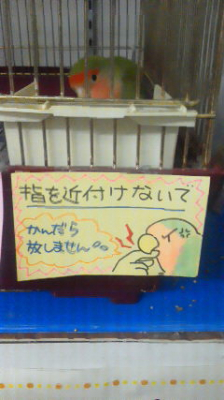 指を近付けないで
かんだら
放しません。。